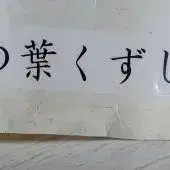 の葉くずし